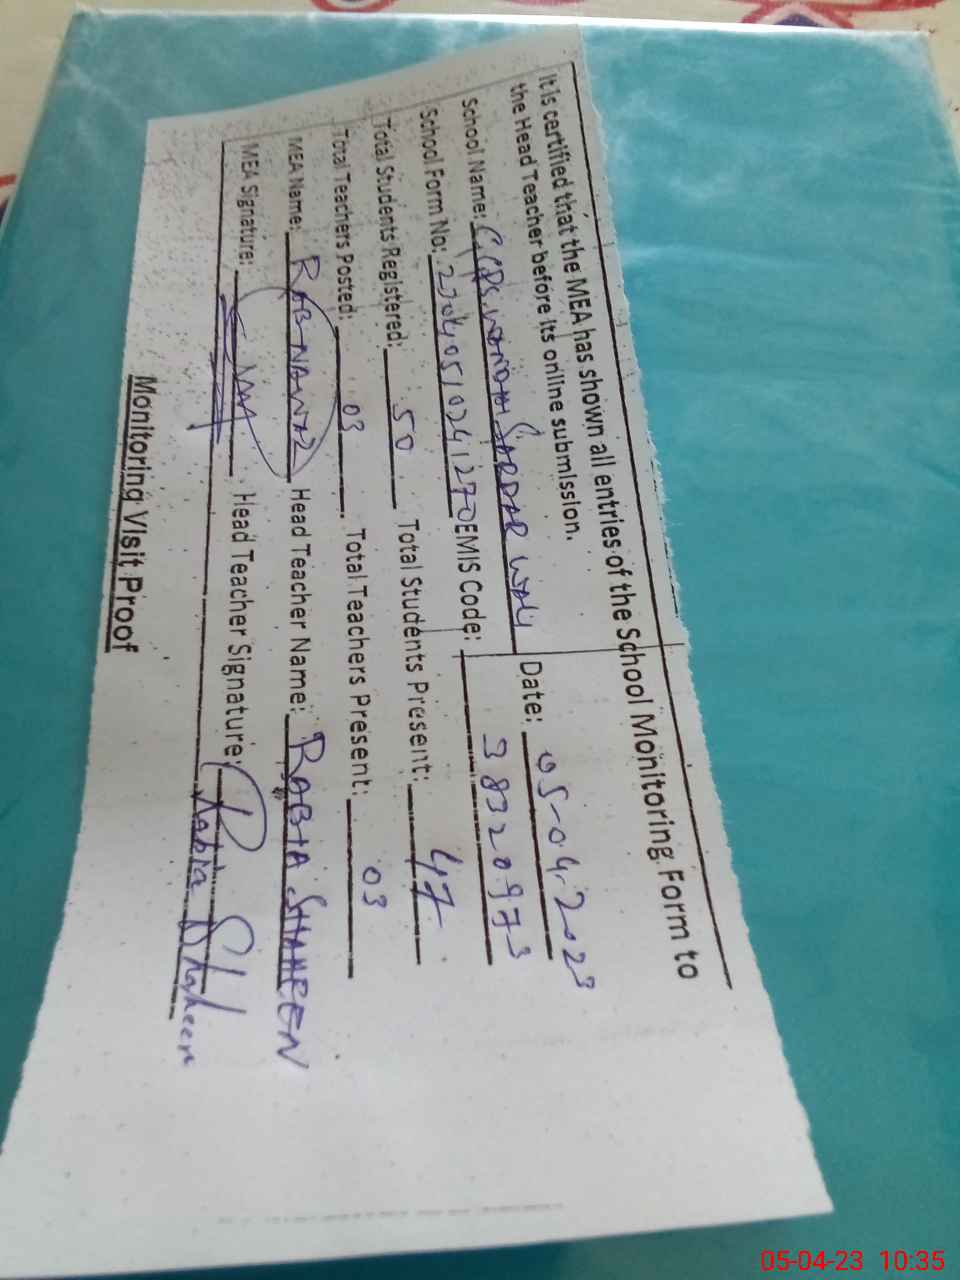 It is certified that the MEA has shown all entries of the School Monitoring Form to
the Head Teacher before its online submission.
School Name: SARDAR WALI Date: 05-04-2023
School Form No: 23040510241270 EMIS Code: 38320973
Total Students Registered: 50 Total Students Present: 47
Total Teachers Posted: 03 Total Teachers Present: 03
MEA Name: RAB NAWAZ Head Teacher Name: RABIA SHAHEEN
MEA Signature: Head Teacher Signature: Rabia Shaheen
Monitoring Visit Proof
05-04-23 10:35